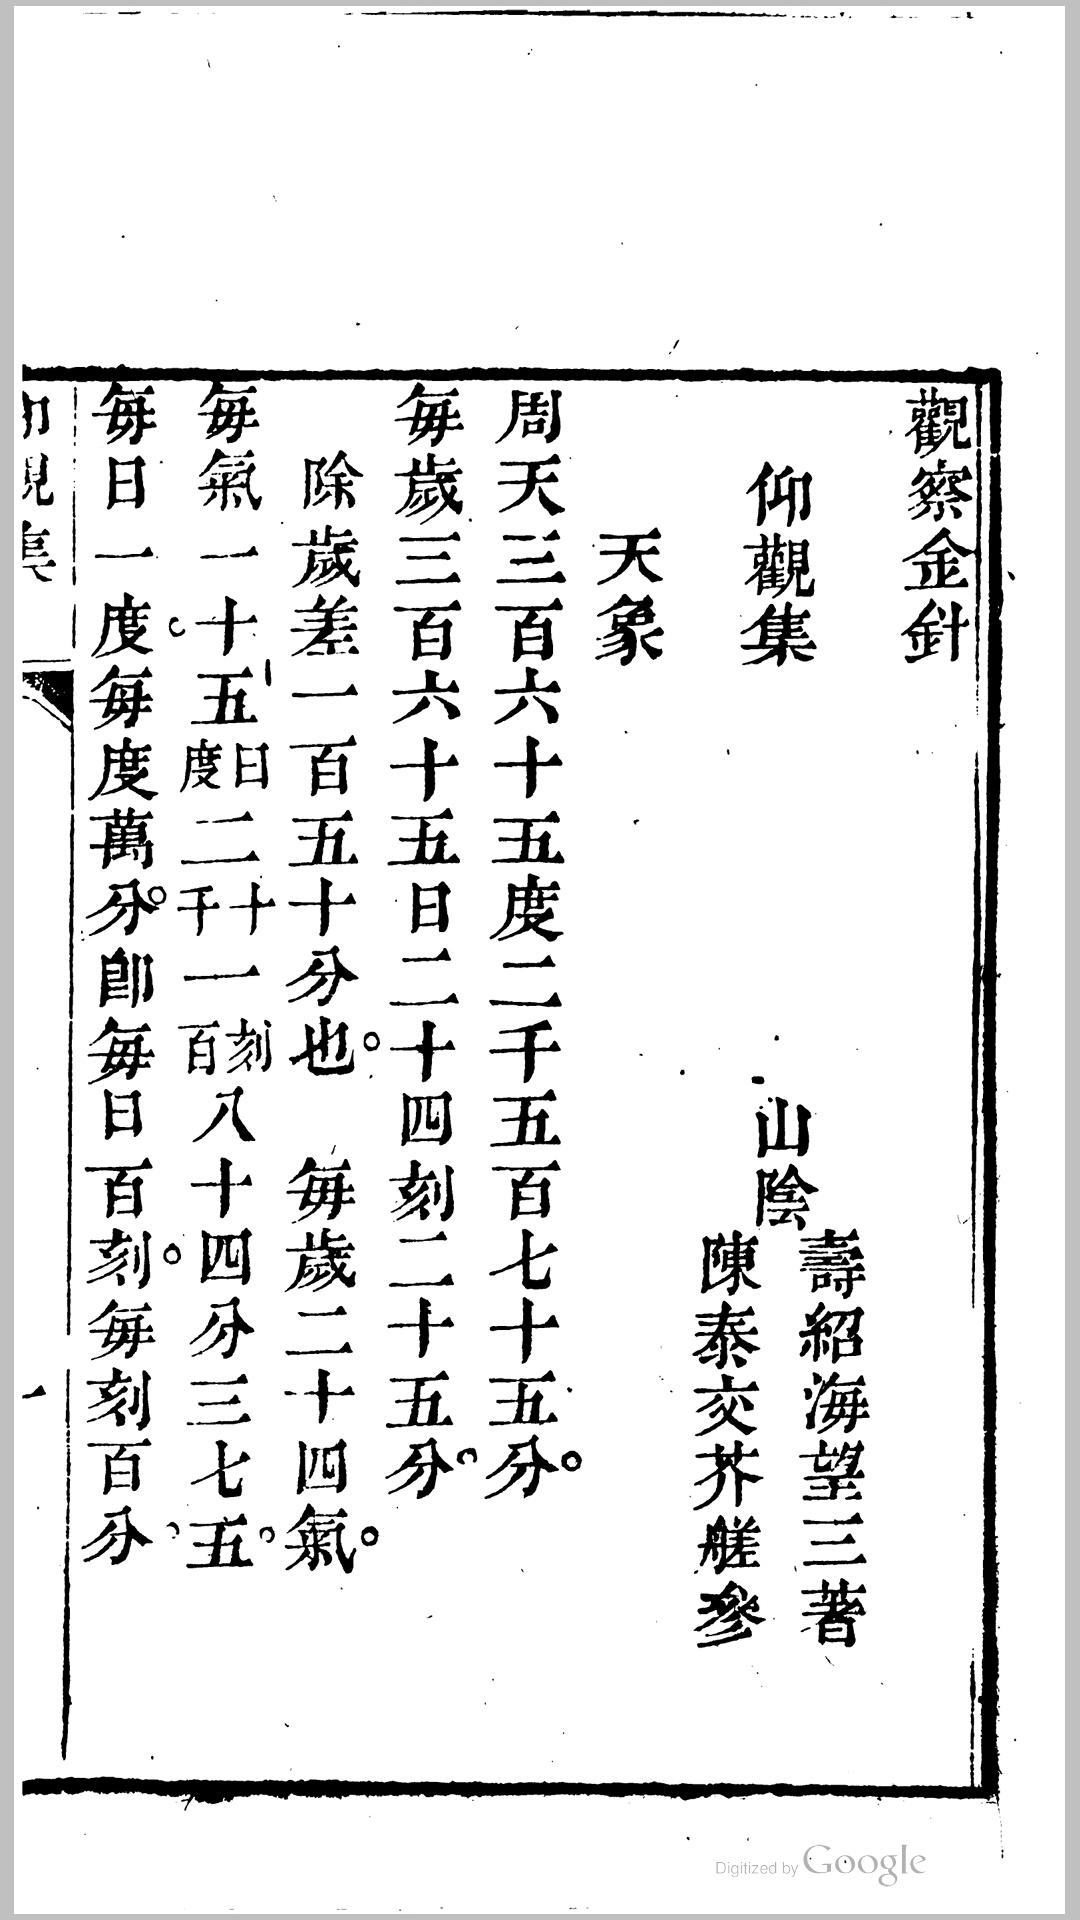 觀察金針
仰觀集
山陰
壽紹海望三著
陳泰交芥艖參
天象
周天三百六十五度二千五百七十五分。
每歲三百六十五日二十四刻二十五分。
除歲差一百五十分也。 每歲二十四氣。
每氣一十五日度二十千一刻百八十四分三七五。
每日一度每度萬分。卽每日百刻。每刻百分。
仰觀集
一
Digitized by Google